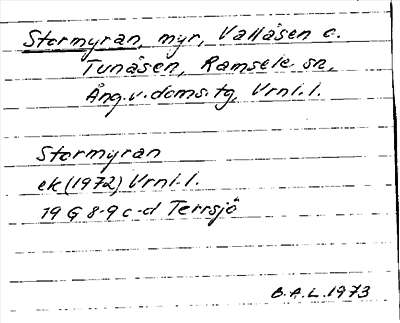 Stormyran, myr, Vallåsen o.
Tunåsen, Ramsele sn,
Ång.v.doms.tg, Vrnl.l.
Stormyran
ek(1972) Vrnl.l.
19 G 8-9 c-d Terrsjö
B.A.L.1973